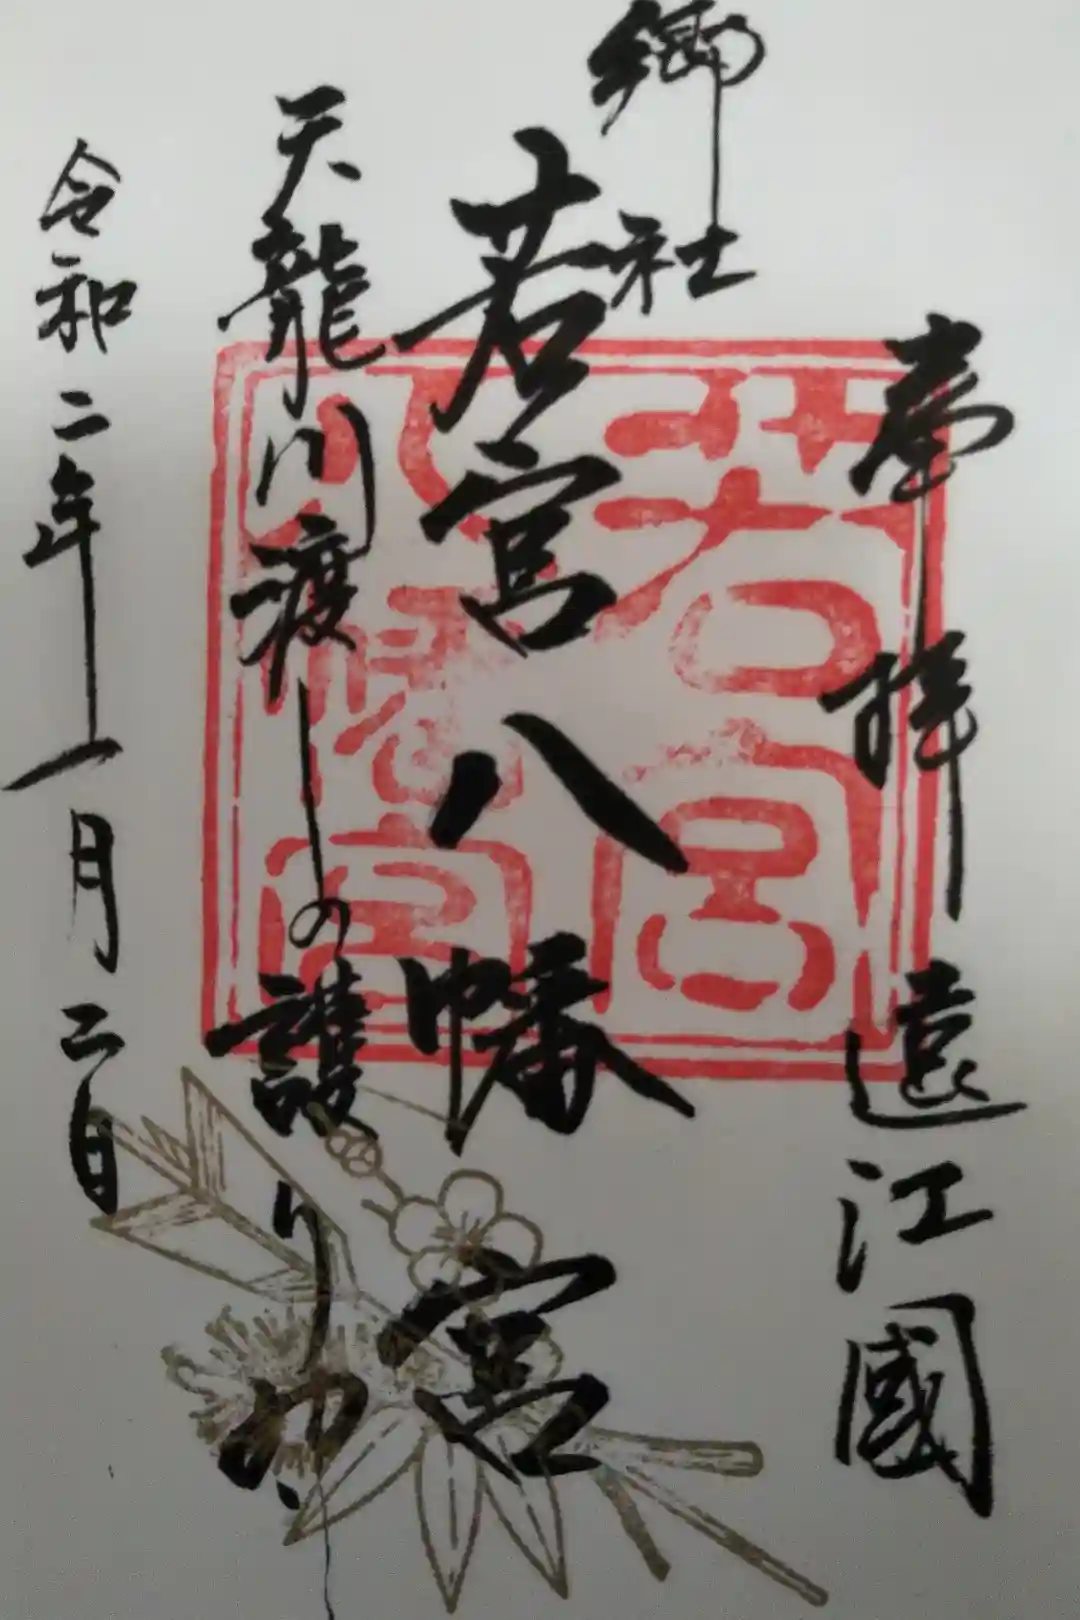 奉拝 遠江國
郷社
若宮八幡宮
天龍川渡しの護り神
令和二年一月二日
若宮
八幡宮